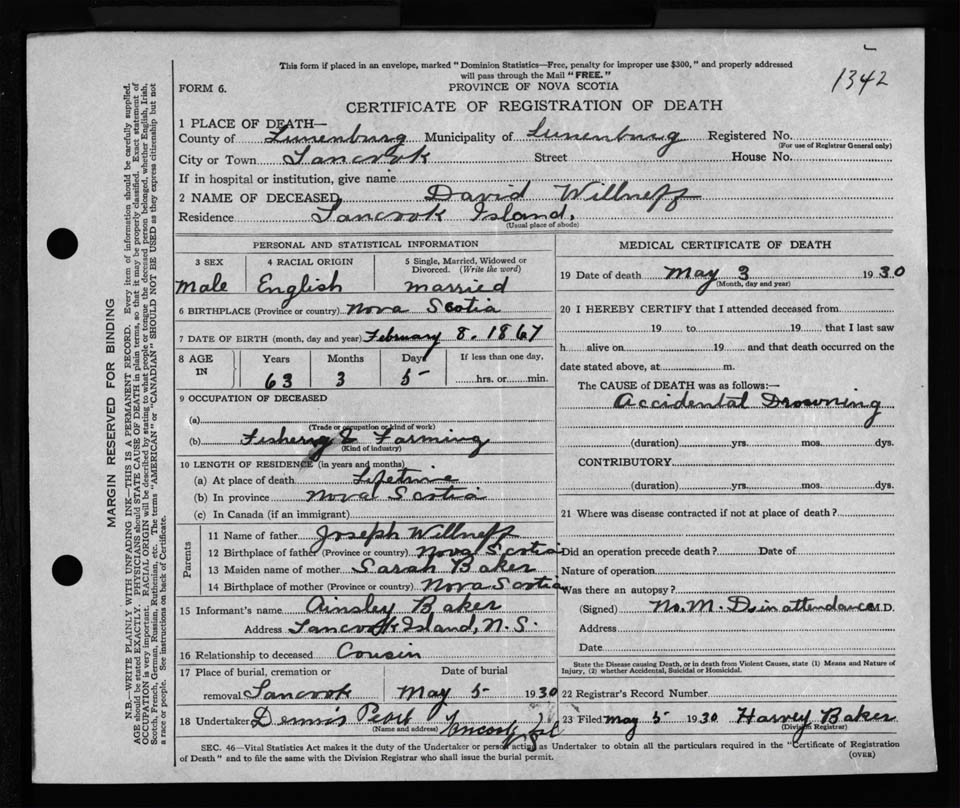 This form if placed in an envelope, marked "Dominion Statistics—Free, penalty for improper use $300," and properly addressed
will pass through the Mail "FREE."
1342
FORM 6.
PROVINCE OF NOVA SCOTIA
CERTIFICATE OF REGISTRATION OF DEATH
1 PLACE OF DEATH—
County of Lunenburg Municipality of Lunenburg Registered No.
(For use of Registrar General only)
City or Town Tancook Street House No.
If in hospital or institution, give name
2 NAME OF DECEASED David Willneff
Residence Tancook Island,
(Usual place of abode)
PERSONAL AND STATISTICAL INFORMATION
3 SEX 4 RACIAL ORIGIN 5 Single, Married, Widowed or
Divorced. (Write the word)
Male English married
6 BIRTHPLACE (Province or country) Nova Scotia
7 DATE OF BIRTH (month, day and year) February 8. 1867
8 AGE IN Years Months Days If less than one day,
63 3 5 hrs. or min.
9 OCCUPATION OF DECEASED
(a)
(Trade or occupation or kind of work)
(b) Fishery & Farming
(Kind of industry)
10 LENGTH OF RESIDENCE (in years and months)
(a) At place of death Lifetime
(b) In province Nova Scotia
(c) In Canada (if an immigrant)
Parents
11 Name of father Joseph Willneff
12 Birthplace of father (Province or country) Nova Scotia
13 Maiden name of mother Sarah Baker
14 Birthplace of mother (Province or country) Nova Scotia
15 Informant's name Ainsley Baker
Address Tancook Island, N.S.
16 Relationship to deceased Cousin
17 Place of burial, cremation or Date of burial
removal Tancook May 5 1930
18 Undertaker Dennis Pearl Tancook Isl
(Name and address)
MEDICAL CERTIFICATE OF DEATH
19 Date of death May 3 1930
(Month, day and year)
20 I HEREBY CERTIFY that I attended deceased from
19 to 19 that I last saw
h alive on 19 and that death occurred on the
date stated above, at m.
The CAUSE of DEATH was as follows:—
Accidental Drowning
(duration) yrs. mos. dys.
CONTRIBUTORY
(duration) yrs. mos. dys.
21 Where was disease contracted if not at place of death?
Did an operation precede death? Date of
Nature of operation
Was there an autopsy?
(Signed) No. M. D. in attendance M.D.
Address
Date
State the Disease causing Death, or in death from Violent Causes, state (1) Means and Nature of
Injury, (2) whether Accidental, Suicidal or Homicidal.
22 Registrar's Record Number
23 Filed May 5 1930 Harvey Baker
(Division Registrar)
SEC. 46—Vital Statistics Act makes it the duty of the Undertaker or person acting as Undertaker to obtain all the particulars required in the "Certificate of Registration
of Death" and to file the same with the Division Registrar who shall issue the burial permit.
(OVER)
MARGIN RESERVED FOR BINDING
N.B.—WRITE PLAINLY WITH UNFADING INK—THIS IS A PERMANENT RECORD. Every item of information should be carefully supplied.
AGE should be stated EXACTLY. PHYSICIANS should STATE CAUSE OF DEATH in plain terms, so that it may be properly classified. Exact statement of
OCCUPATION is very important. RACIAL ORIGIN will be described by stating to what people or tongue the deceased person belonged, whether English, Irish,
Scotch, French, German, Russian, Ruthenian, etc. The terms "AMERICAN" or "CANADIAN" SHOULD NOT BE USED as they express citizenship but not
a race or people. See instructions on back of Certificate.